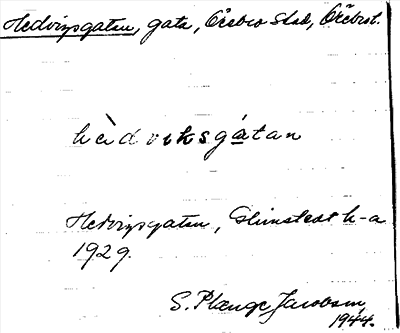 Hedvigsgatan, gata, Örebro stad, Örebro l.
hèdviksgátan
Hedvigsgatan, h-a
1929.
S. Plange Jacobson,
1944.